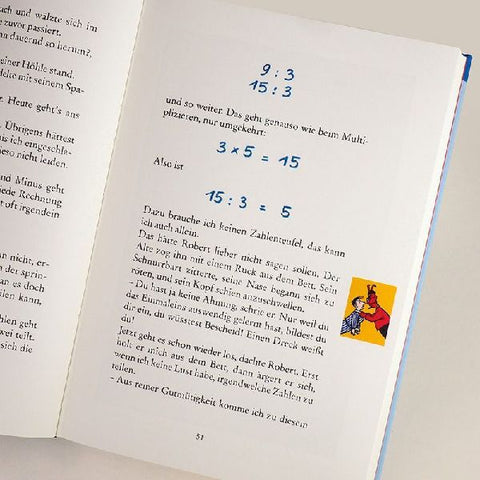 uch und wälzte sich im
zuvor passiert.
nn dauernd so herum?,
einer Höhle stand.
delte mit seinem Spa-
r. Heute geht's aus
. Übrigens hättest
ich eingeschla-
ieso nicht leiden.
nd Minus geht
jede Rechnung
t oft irgendein
an nicht, er-
der sprin-
an es doch
eilen kann,
hlen geht
wei teilt.
sich die
9 : 3
15 : 3
und so weiter. Das geht genauso wie beim Multi-
plizieren, nur umgekehrt:
3 × 5 = 15
Also ist
15 : 3 = 5
Dazu brauche ich keinen Zahlenteufel, das kann
ich auch allein.
Das hätte Robert lieber nicht sagen sollen. Der
Alte zog ihn mit einem Ruck aus dem Bett. Sein
Schnurrbart zitterte, seine Nase begann sich zu
röten, und sein Kopf schien anzuschwellen.
– Du hast ja keine Ahnung, schrie er. Nur weil du
das Einmaleins auswendig gelernt hast, bildest du
dir ein, du wüsstest Bescheid! Einen Dreck weißt
du!
Jetzt geht es schon wieder los, dachte Robert. Erst
holt er mich aus dem Bett, dann ärgert er sich,
wenn ich keine Lust habe, irgendwelche Zahlen zu
teilen.
– Aus reiner Gutmütigkeit komme ich zu diesem
51